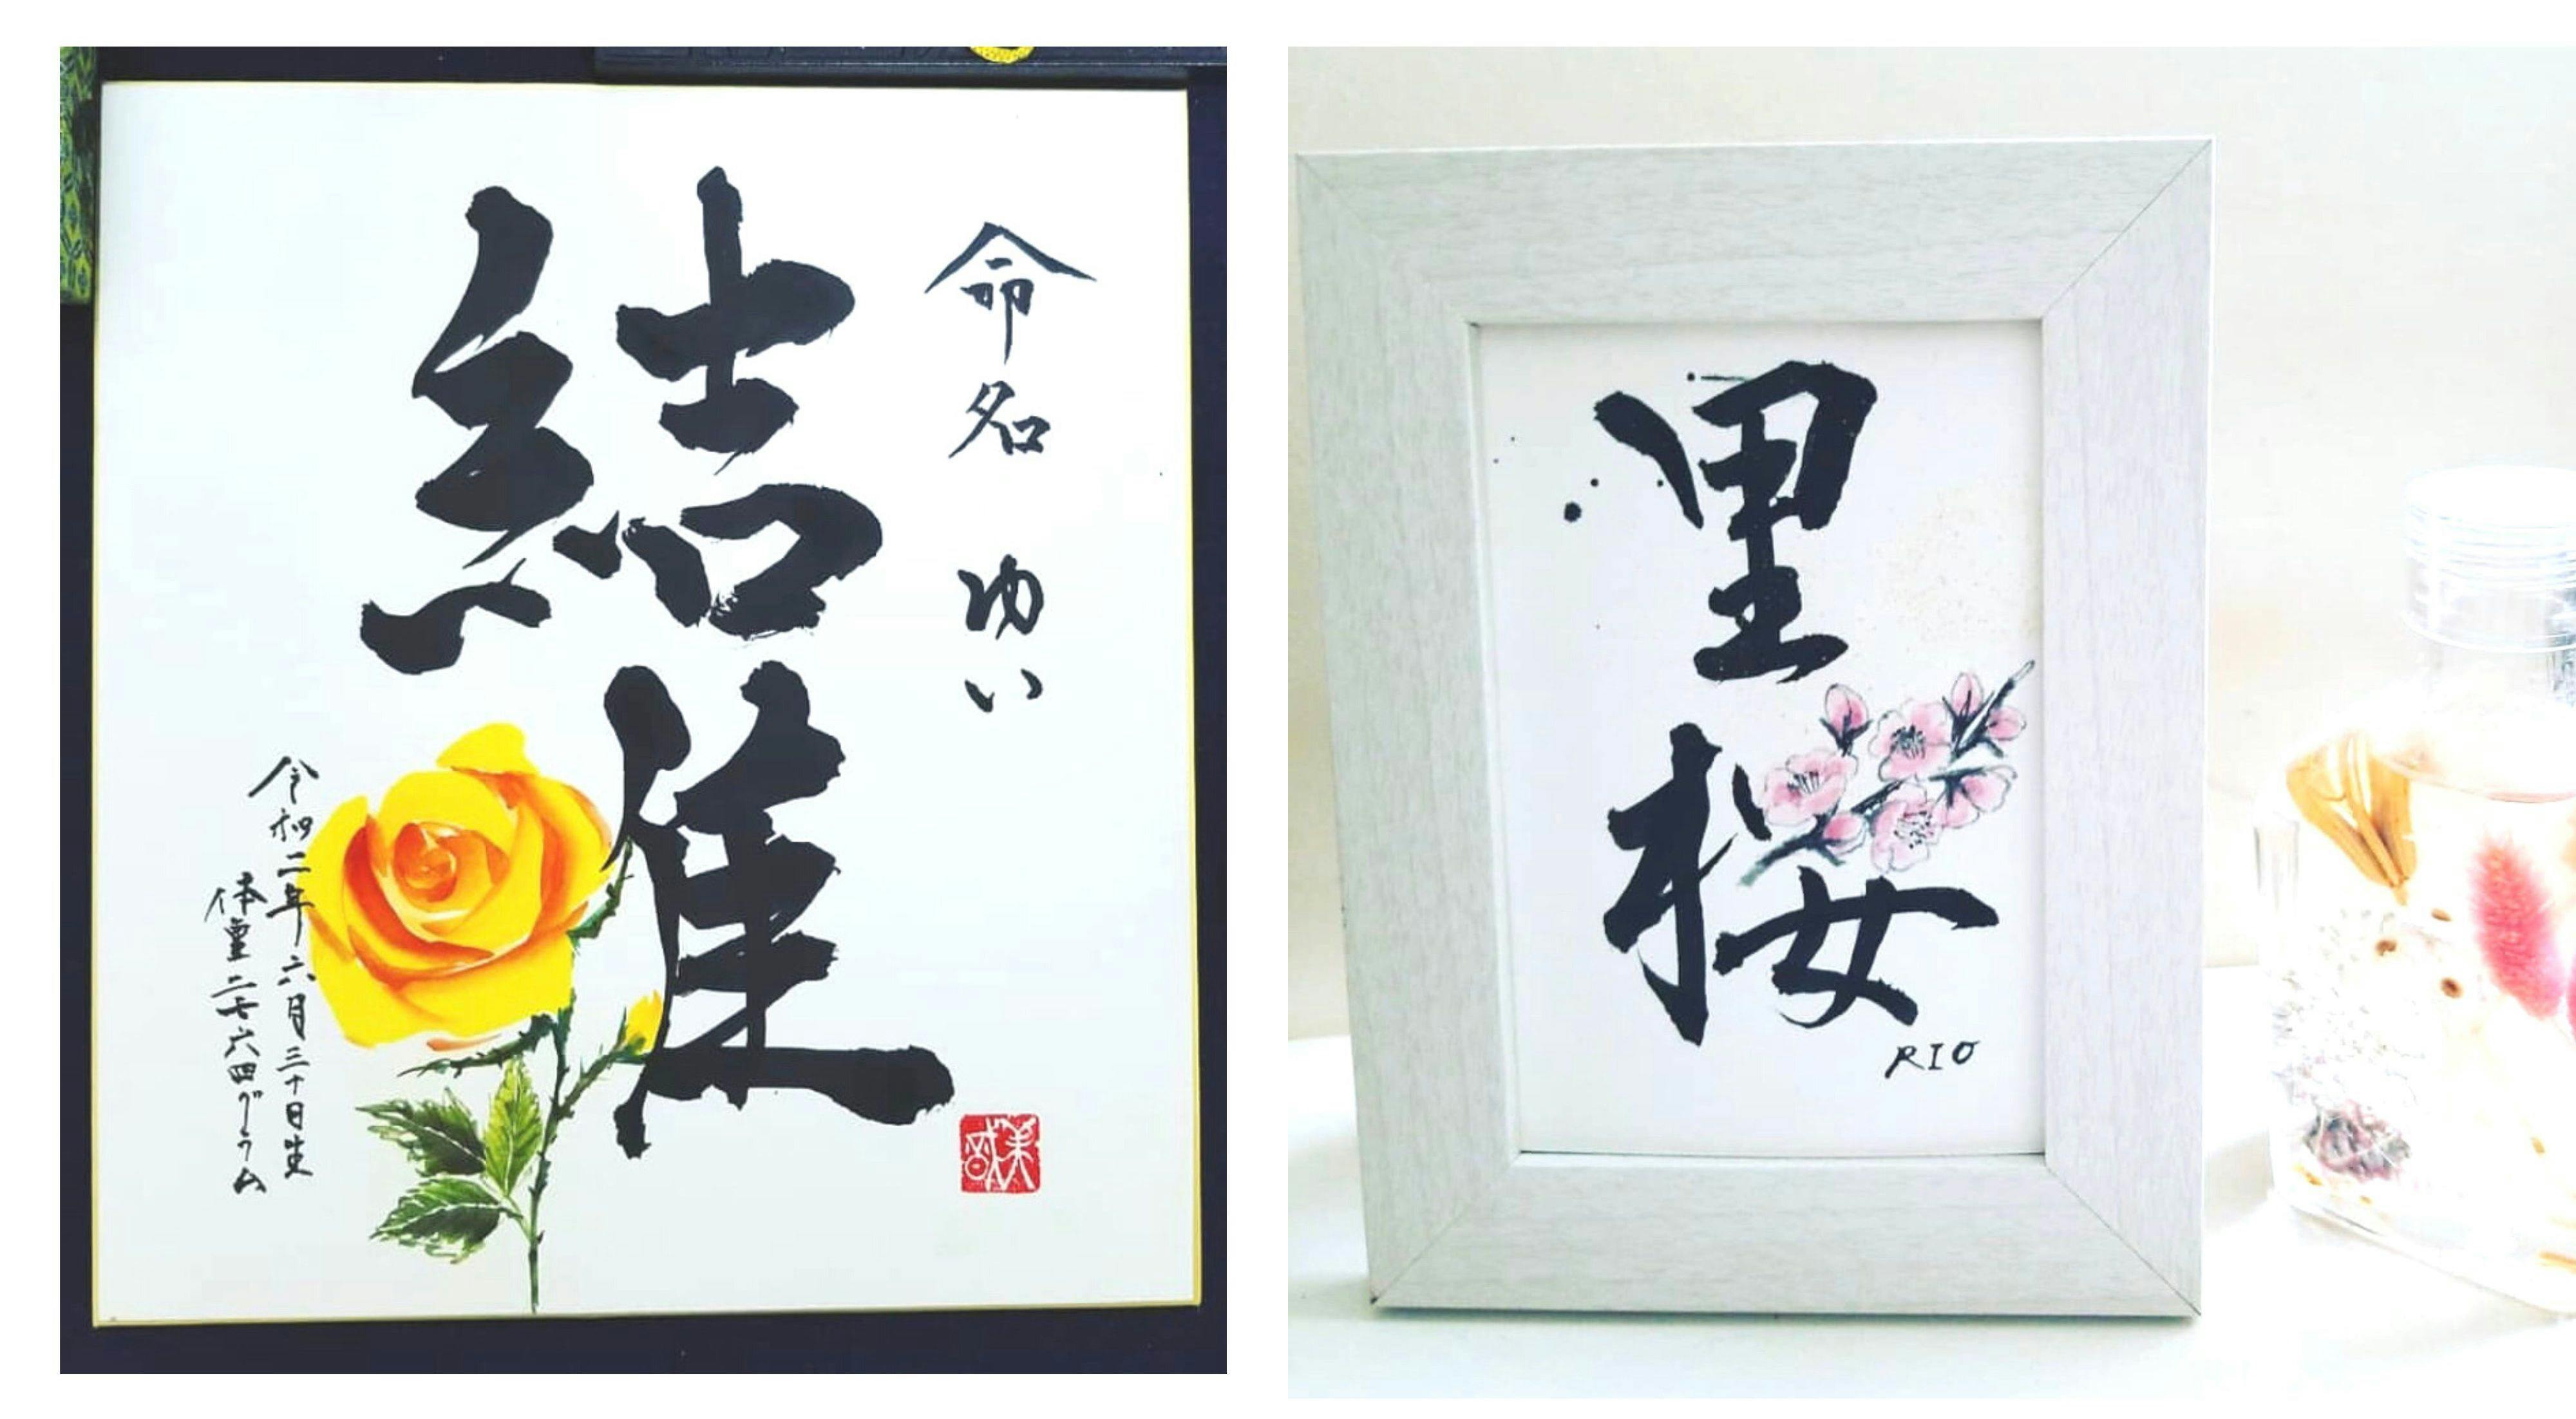 命名 ゆい
結唯
令和二年六月三十日生
体重二七六四グラム
里桜
RIO